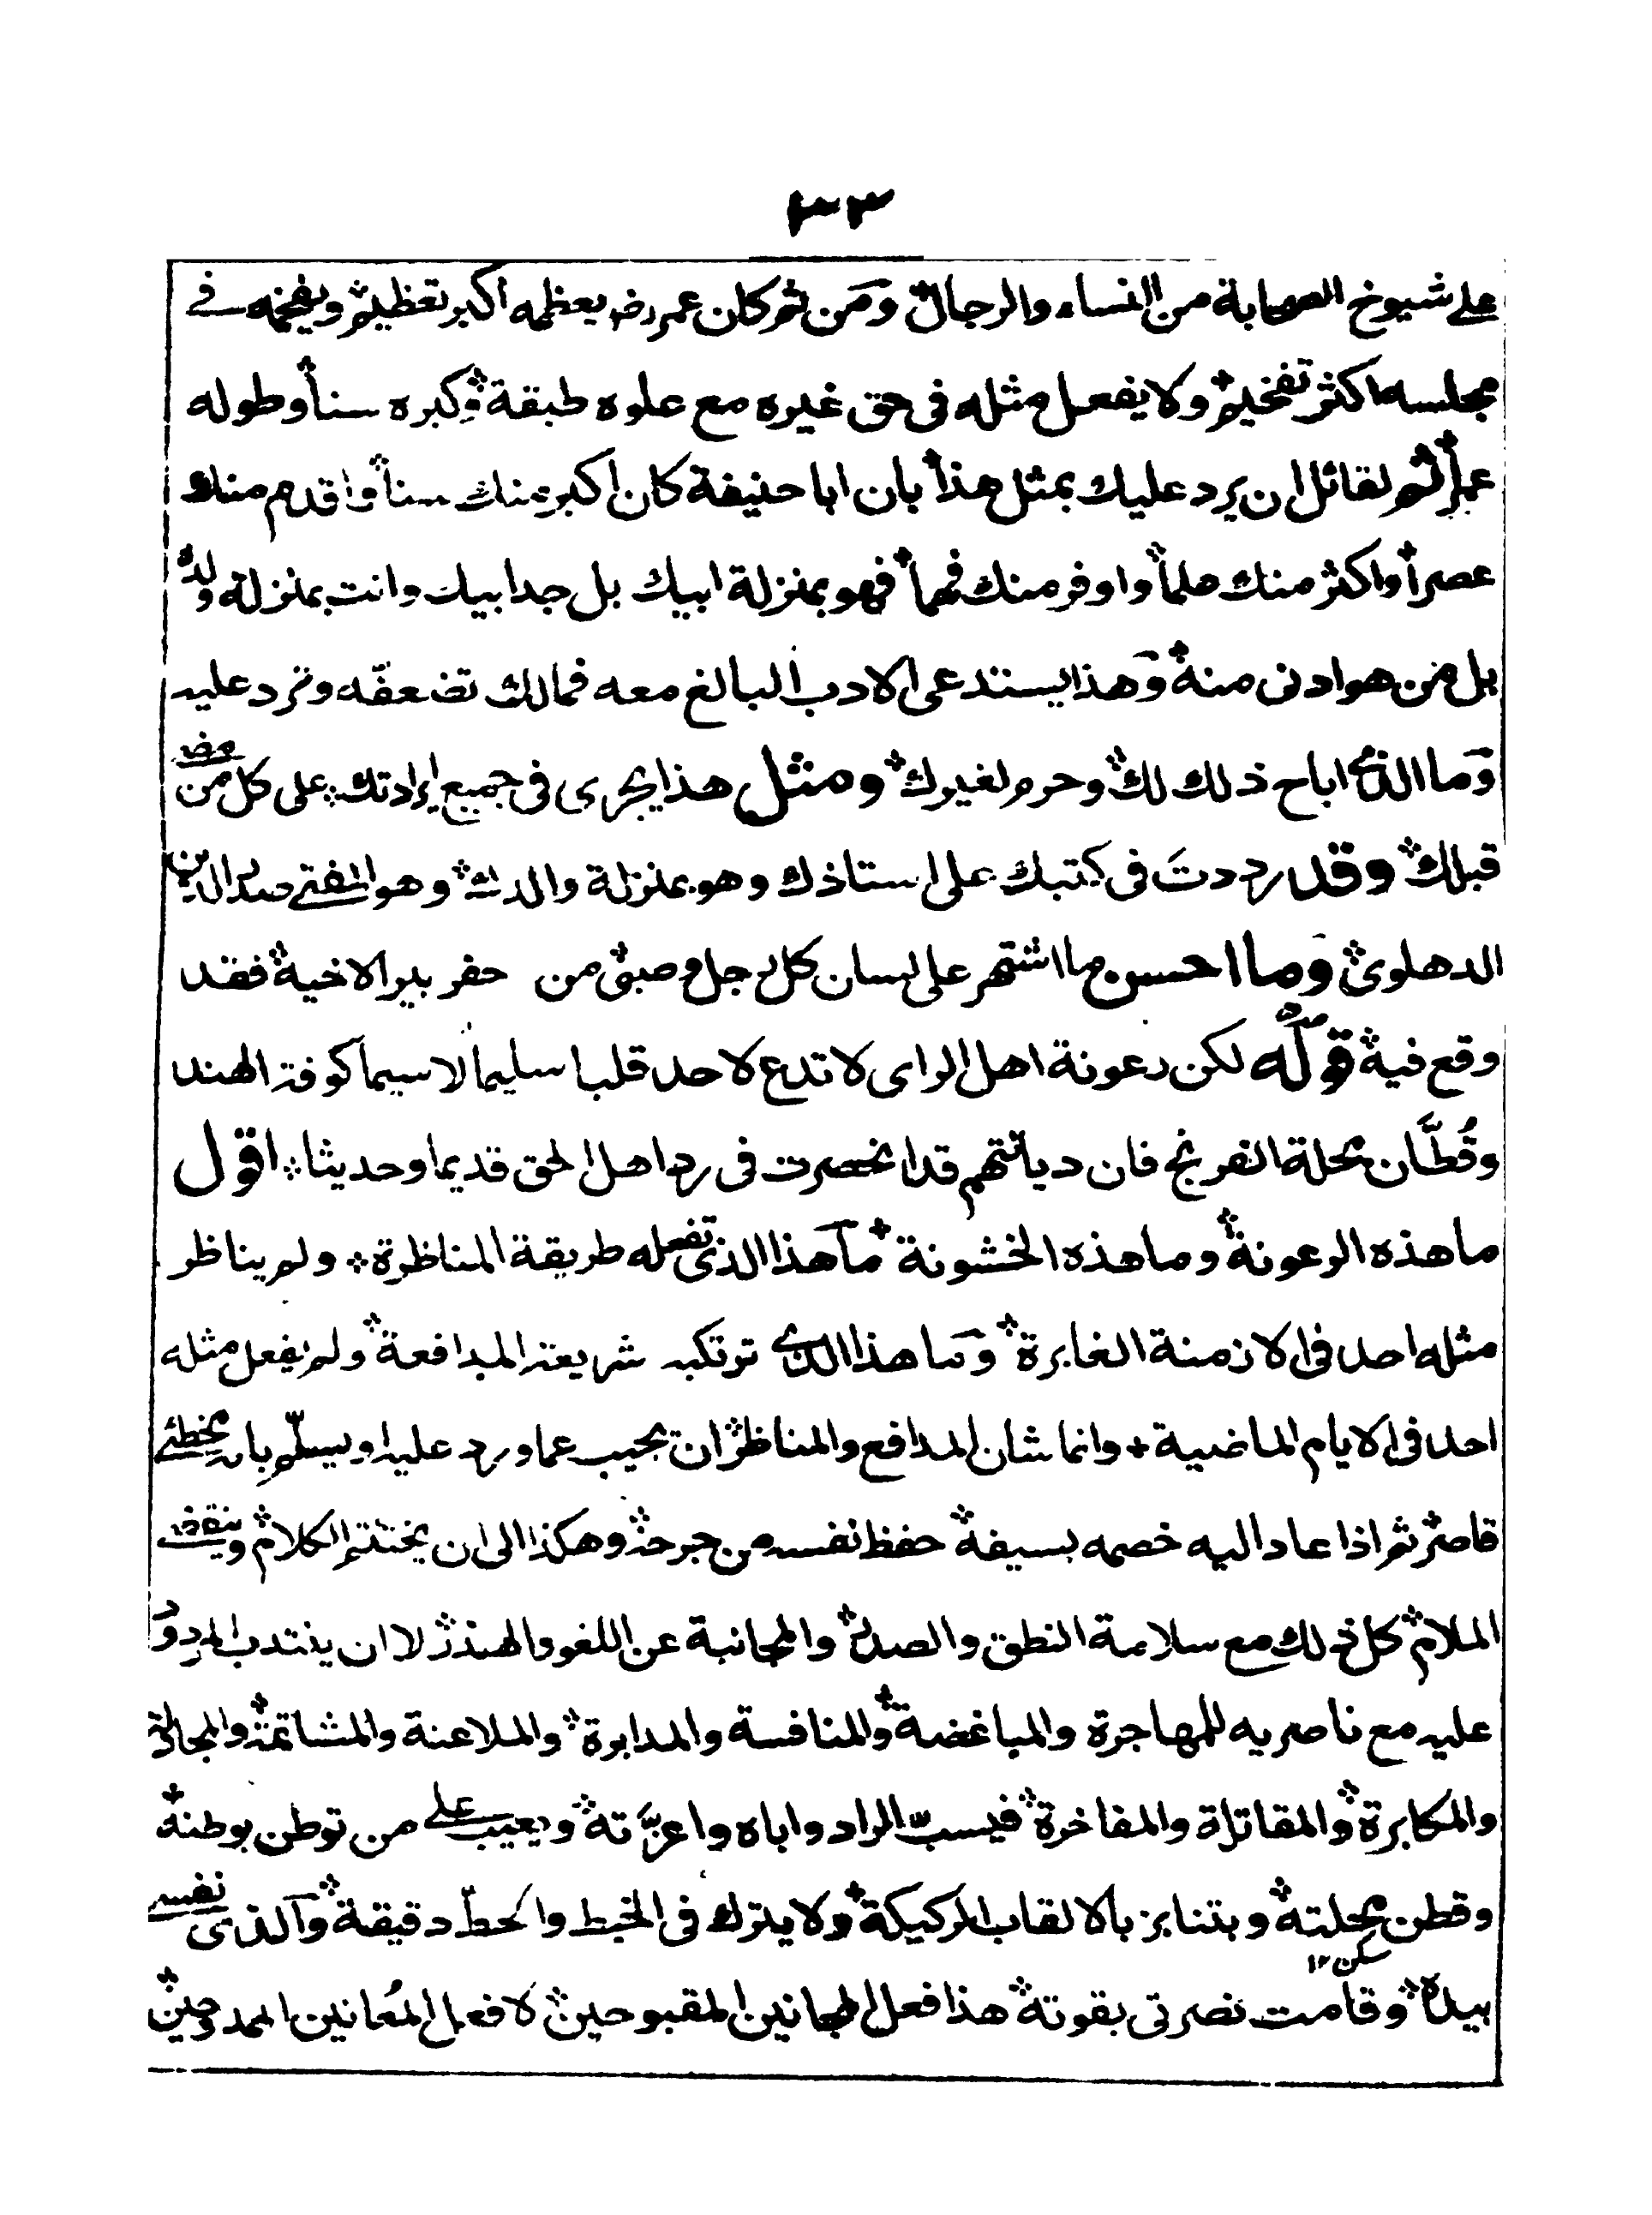 على شيوخ الصحابة من النساء والرجال ومن ثم كان عمر رض يعظمه اكبر تعظيم ويفخمه في
مجلسه اكثر تفخيم ولا يفعل مثله في حق غيره مع علوه طبقة وكبره سنا وطوله
ثم لقائل ان يرد عليك بمثل هذا بان ابا حنيفة كان اكبر منك سنا واقدم منك
عصرا واكثر منك علما واوفر منك فهما فهو بمنزلة ابيك بل جد ابيك وانت بمنزلة ولده
بل من هو ادنى منه وهذا يستدعى الادب البالغ معه فمالك تضعفه وترد عليه
وما الذي اباح ذلك لك وحرم لغيرك ومثل هذا يجرى في جميع ايرادتك على كل من مضى
قبلك وقد رددت في كتبك على استاذك وهو بمنزلة والدك وهو المفتي صدر الدين
الدهلوي وما احسن ما اشتهر على لسان كل رجل وصبي من حفر بير الاخيه فقد
وقع فيه قوله لكن رعونة اهل الراى لا تدع لاحد قلبا سليما لا سيما كوفة الهند
وقُطَّان محلة الفرنج فان ديانتهم قد انحصرت في رد اهل الحق قديما وحديثا اقول
ما هذه الرعونة وما هذه الخشونة ما هذا الذي تفعله طريقة المناظرة ولم يناظر
مثله احد في الازمنة الغابرة وما هذا الذي ترتكبه شريعة المدافعة ولم يفعل مثله
احد في الايام الماضية وانما شان المدافع والمناظر ان يجيب عما ورد عليه او يسلّم بانه مخطئ
قاصر ثم اذا عاد اليه خصمه بسيفه حفظ نفسه من جرحه وهكذا الى ان يختتم الكلام وينقضي
الملام كل ذلك مع سلامة النطق والصدر والمجانبة عن اللغو والهذر لا ان ينتدب
عليه مع ناصريه للمهاجرة والمباغضة والمنافسة والمدابرة والملاعنة والمشاتمة والمجادلة
والمكابرة والمقاتلة والمفاخرة فيسبّ الراد واباه واعزّته ويعيب على من توطن بوطنه
وقطن بمحلته ويتنابز بالالقاب الركيكة ولا يترك في الخبط والحطّ دقيقة والذي نفسي
سكن ١٢
بيده وقامت نصرتي بقوته هذا فعل المجانين المقبوحين لا فعل المُعانين الممدوحين